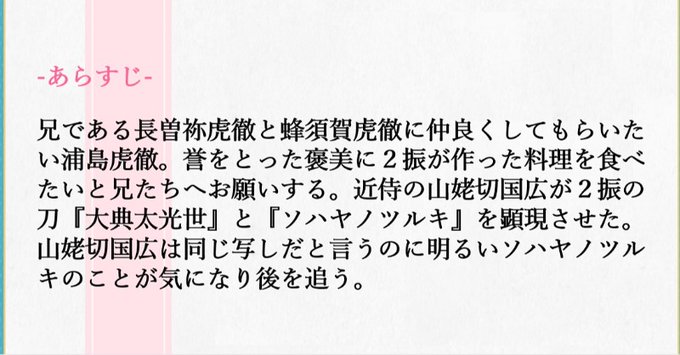 -あらすじ-
兄である長曽祢虎徹と蜂須賀虎徹に仲良くしてもらいた
い浦島虎徹。誉をとった褒美に２振が作った料理を食べ
たいと兄たちへお願いする。近侍の山姥切国広が２振の
刀『大典太光世』と『ソハヤノツルキ』を顕現させた。
山姥切国広は同じ写しだと言うのに明るいソハヤノツル
キのことが気になり後を追う。